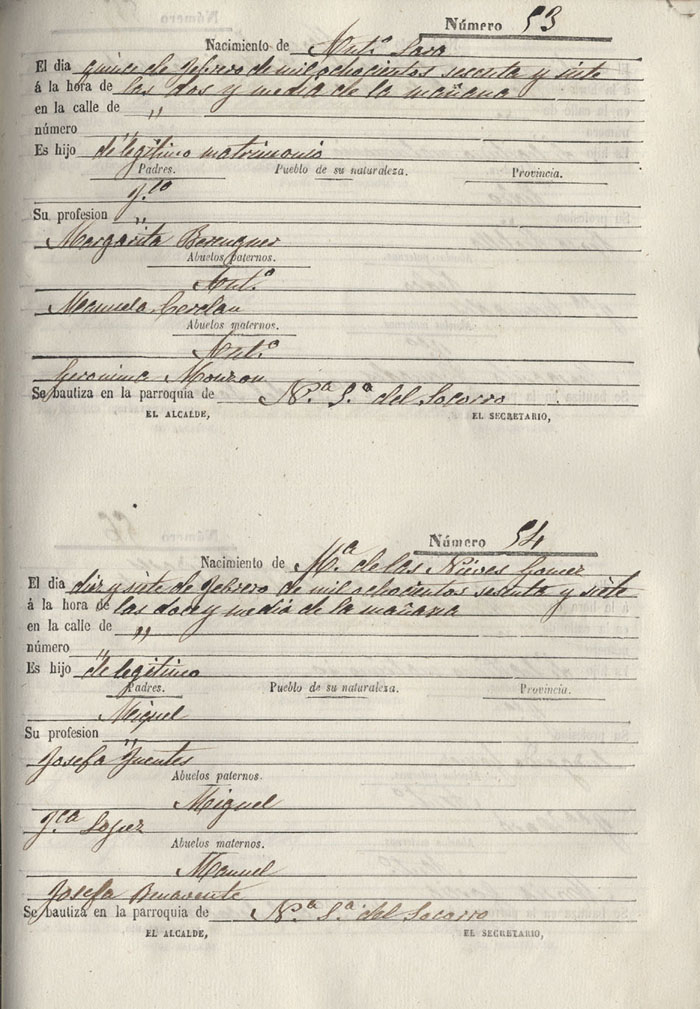 Número 53
Nacimiento de Antº Lara
El dia quince de febrero de mil ochocientos sesenta y siete
á la hora de las dos y media de la mañana
en la calle de "
número "
Es hijo de legitimo matrimonio
Padres. Pueblo de su naturaleza. Provincia.
Su profesion "
Margarita Berenguer
Abuelos paternos.
Antº
Manuela Cerdan
Abuelos maternos.
Antº
Geronima Monzon
Se bautiza en la parroquia de Nª Sª del Socorro
EL ALCALDE, EL SECRETARIO,
Número 54
Nacimiento de Mª de las Nieves Gomez
El dia diez y siete de febrero de mil ochocientos sesenta y siete
á la hora de las doce y media de la mañana
en la calle de "
número "
Es hijo de legitimo
Padres. Pueblo de su naturaleza. Provincia.
Miguel
Su profesion "
Josefa Fuentes
Abuelos paternos.
Miguel
Fca Lopez
Abuelos maternos.
Manuel
Josefa Benavente
Se bautiza en la parroquia de Nª Sª del Socorro
EL ALCALDE, EL SECRETARIO,